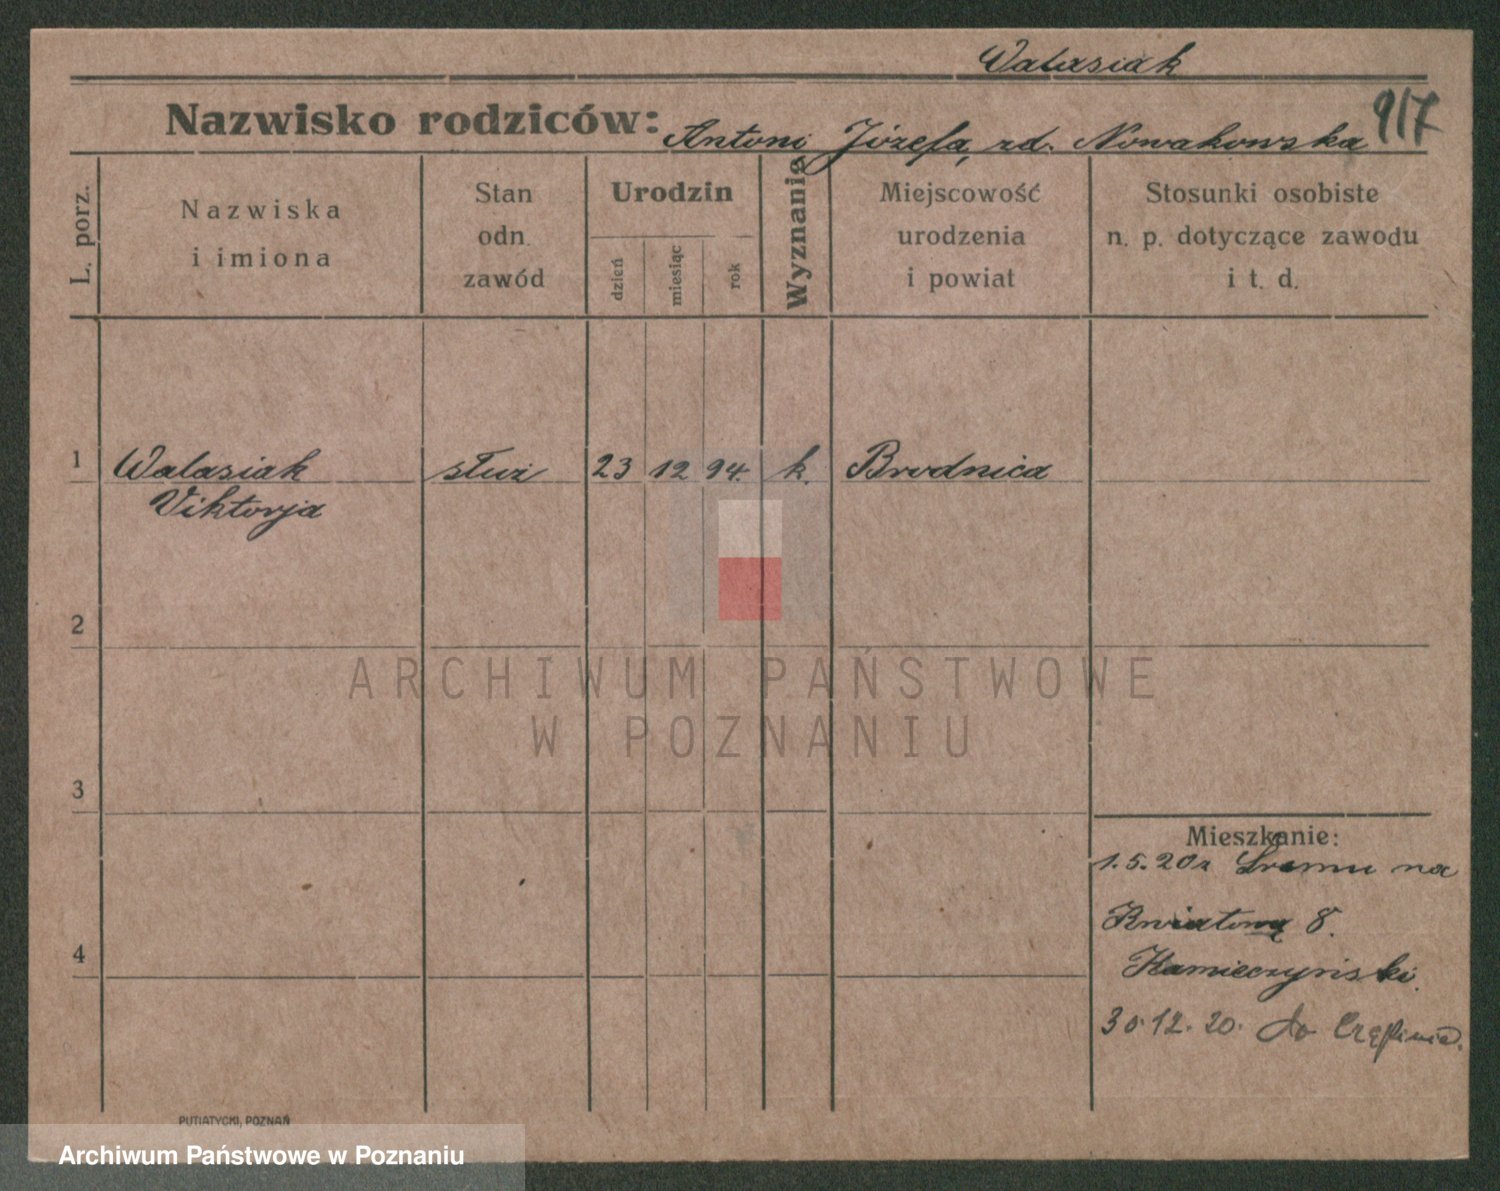 Walasiak
917
Nazwisko rodziców: Antoni Józefa, rd. Nowakowska
L. porz.
Nazwiska
i imiona
Stan
odn.
zawód
Urodzin
dzień
miesiąc
rok
Wyznanie
Miejscowość
urodzenia
i powiat
Stosunki osobiste
n. p. dotyczące zawodu
i t. d.
1 Walasiak służ 23 12 94. k. Brodnica
Viktorja
2
ARCHIWUM PAŃSTWOWE
W POZNANIU
3
Mieszkanie:
1.5.20 z Śremu na
Kwiatową 8.
4
Kamieczyński.
30.12.20. do
PUTIATYCKI, POZNAŃ
Archiwum Państwowe w Poznaniu